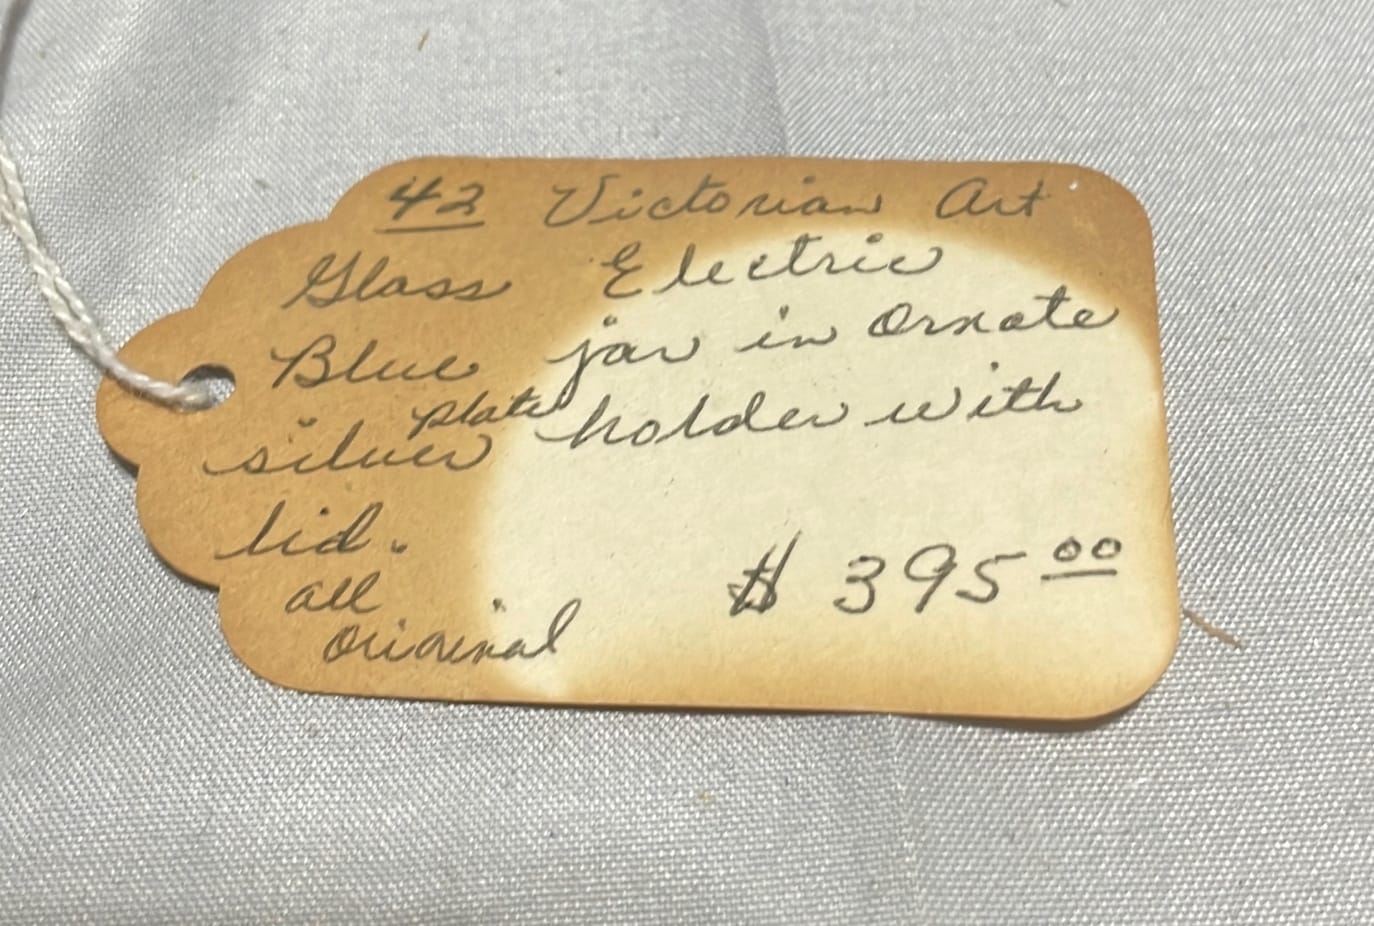 42 Victorian Art
Glass Electric
Blue jar in Ornate
silver plate holder with
lid.
all
original
$ 395.00